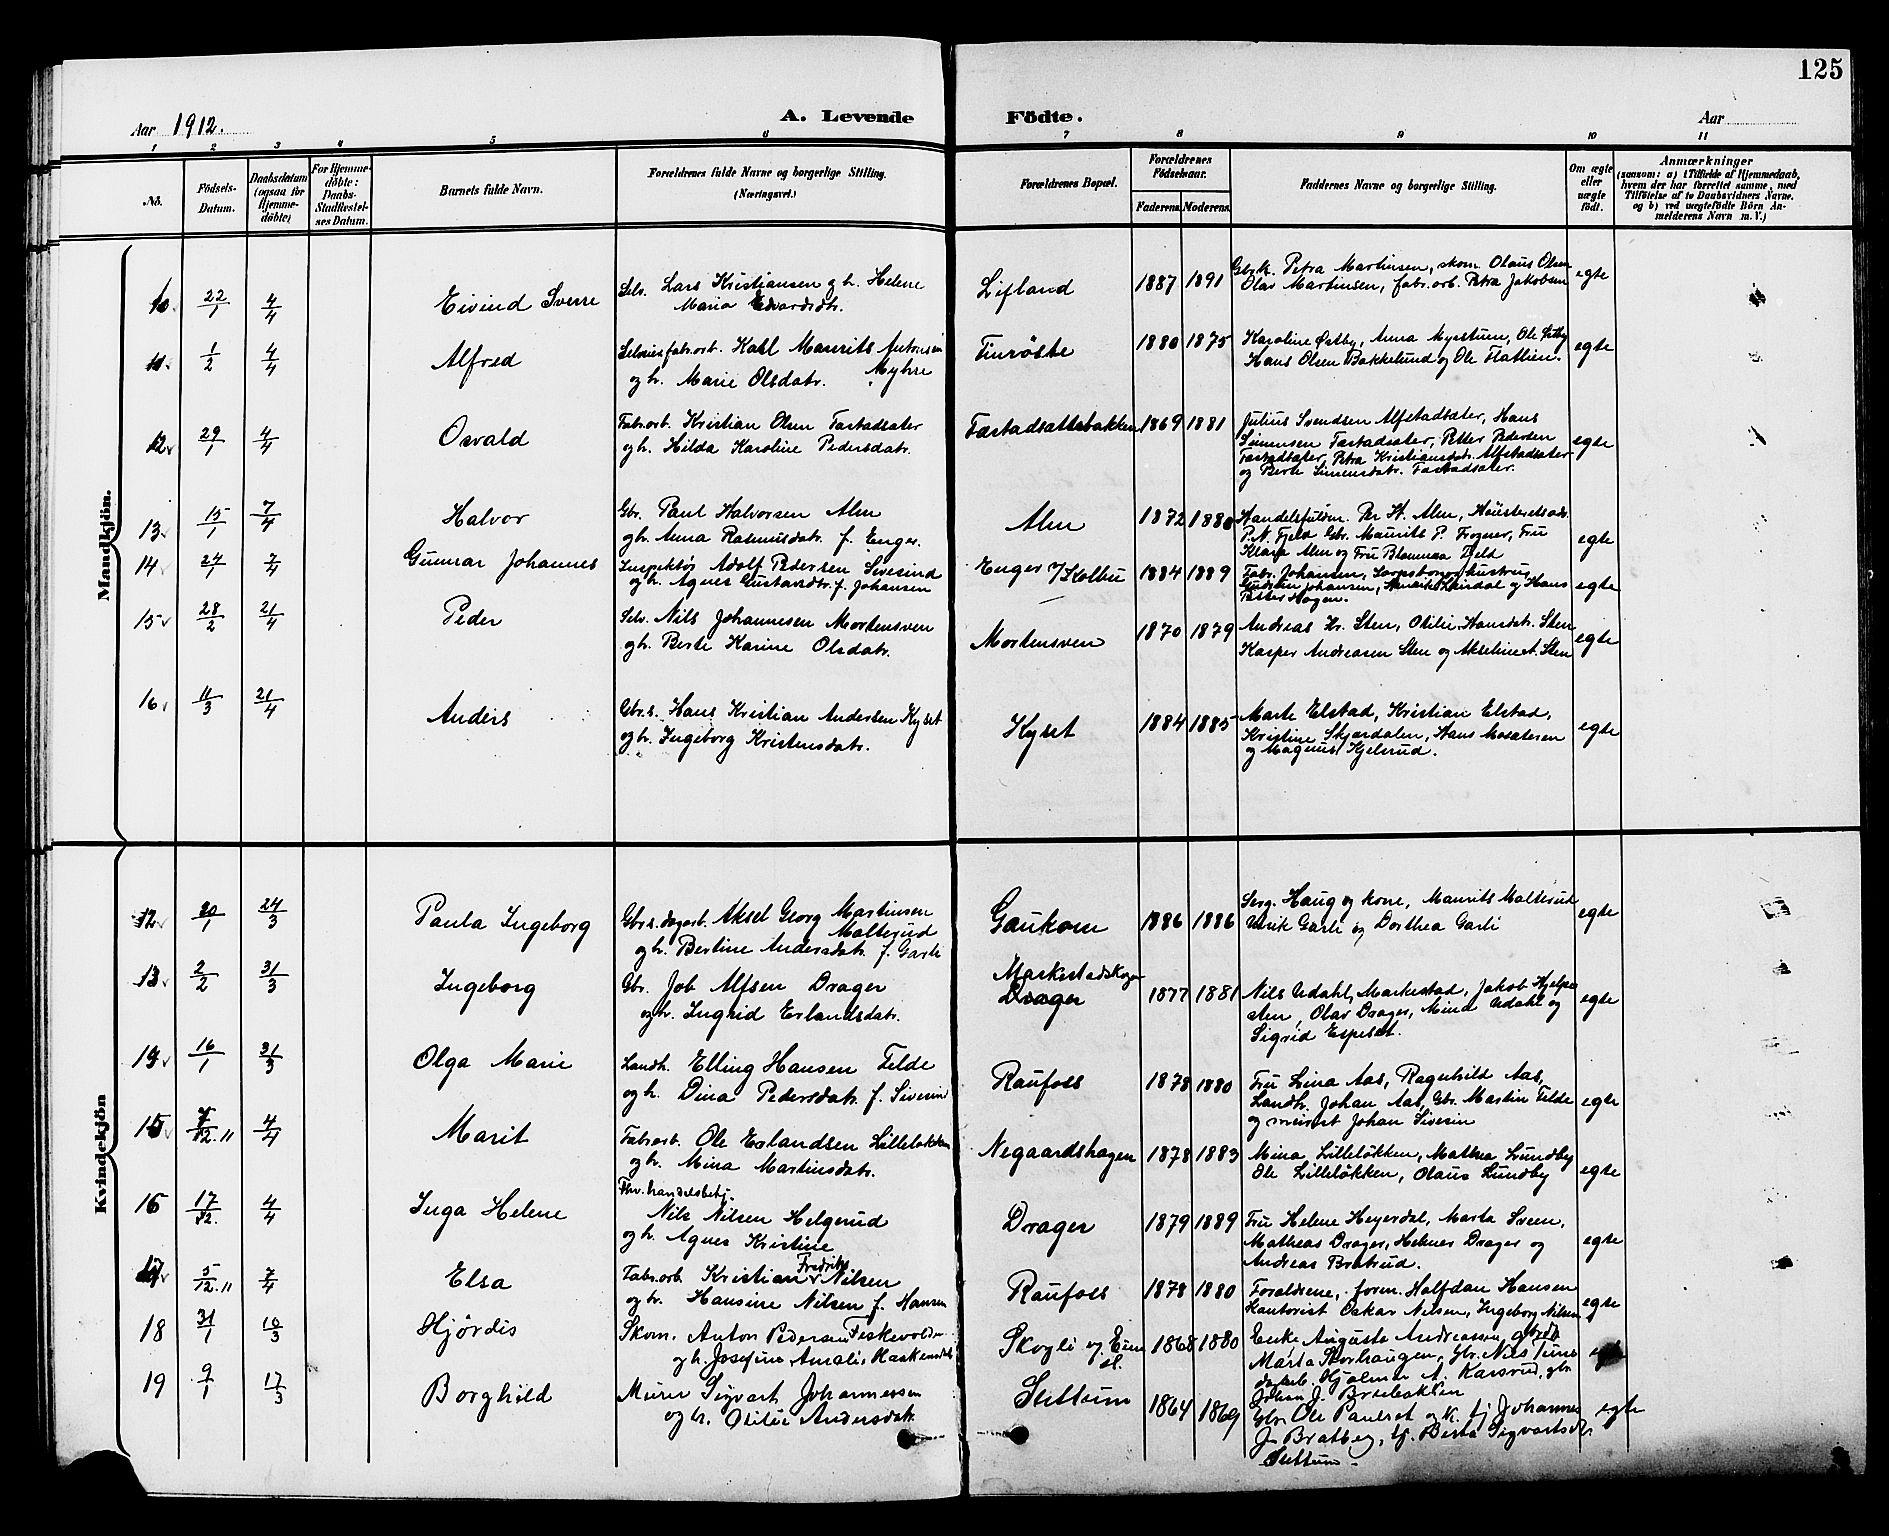 125
Aar 1912.
A. Levende Födte.
Aar
1 2 3 4 5 6 7 8 9 10 11
No.
Födsels-Datum.
Daabsdatum (ogsaa for Hjemmedöbte)
For Hjemmedöbte: Daabs-Stadfæstelses Datum.
Barnets fulde Navn.
Forældrenes fulde Navne og borgerlige Stilling. (Næringsvei.)
Forældrenes Bopæl.
Forældrenes Födselsaar.
Faderens. Moderens.
Faddernes Navne og borgerlige Stilling.
Om ægte eller uægte födt.
Anmærkninger
(saasom: a) i Tilfælde af Hjemmedaab,
hvem der har forrettet samme, med
Tilföielse af to Daabsvidners Navne.
og b) ved uægtefödte Börn An-
melderens Navn m. V.)
Mandkjön.
10 22/1 4/4 Eivind Sverre Selv. Lars Kristiansen og h. Helene Lifland 1887 1891 Gbrk. Petra Martinsen, skom. Olaus Olsen egte
Maria Edvardsdtr. Olav Martinsen, fabr.arb. Petra Jakobsen
11 1/2 4/4 Alfred fabr.arb. Karl Maurits Antonsen Myhre Finröste 1880 1875 Karoline Østby, Anna Myrstuen, Ole Østby egte
og h. Marie Olsdatr. Hans Olsen Bakkelund og Ole Flatlien.
12 29/1 4/4 Osvald Fabr.arb. Kristian Olsen Tastadsæter Tastadsætbakken 1869 1881 Julius Svendsen Alfstadsæter, Hans egte
og h. Hilda Karoline Pedersdatr. Simensen Tastadsæter, Petter Pedersen
Tastadsæter, Petra Kristiansdatr. Alfstadsæter
og Berte Simensdatr. Tastadsæter.
13 15/1 7/4 Halvor Gbr. Paul Halvorsen Alm Alm 1872 1880 Handelsfuldm. Per H. Alm, egte
og h. Anna Rasmusdatr. f. Enger. P. N. Fjeld Gbr. Maurits P. Frogner, Fru
Klara Alm og Fru Fjeld
14 24/1 7/4 Gunnar Johannes Inspektör Adolf Pedersen Sivesind Enger v/Kolbu 1884 1889 Fabr. Johansen, Sarpsborg, hustru egte
og h. Agnes Gustavsdtr. f. Johansen Johansen, og Hans
Petter Hogen.
15 28/2 21/4 Peder Selv. Nils Johannesen Mortensven Mortensven 1870 1879 Andreas Kr. Sten, Otilie Hansdatr. Sten egte
og h. Berte Karine Olsdatr. Kasper Andreasen Sten og Akseline A. Sten
16 11/3 21/4 Anders Gbr.s. Hans Kristian Andersen Kyset Kyset 1884 1885 Marte Elstad, Kristian Elstad, egte
og h. Ingeborg Kristensdatr. Kristine Skjærdalen, Hans Mosateren
og Magnus Kjelsrud.
Kvindekjön
12 30/1 24/3 Paula Ingeborg Gbr.s. dagarb. Aksel Georg Martinsen Malterud Gaukom 1886 1886 Serg. Haug og kone, Maurits Malterud egte
og h. Bertine Andersdatr. f. Garli Ulrik Garli og Dorthea Garli
13 2/2 31/3 Ingeborg Gbr. Job Alfsen Drager Markestadskogen Drager 1877 1881 Nils Udahl, Markestad, Jakob Hjelper egte
og h. Ingrid Erlandsdatr. sten, Olav Drager, Mina Udahl og
Sigrid Espeset.
14 16/1 31/3 Olga Marie Landh. Elling Hansen Tilde Raufoss 1878 1880 Fru Lina Aas, Ragnhild Aas, egte
og h. Dina Pedersdatr. f. Sivesin Landh. Johan Aas, Gbr. Martin Tilde
og Johan Sivesin
15 /12.11 4/4 Marit Fabr.arb. Ole Erlandsen Lilleløkken Negaardshagen 1878 1883 Mina Lilleløkken, Mathea Lundby egte
og h. Mina Martinsdatr. Ole Lilleløkken, Olaus Lundby
16 17/12. 4/4 Inga Helene Fhv. handelsbetj.
Nils Nilsen Helgerud Drager 1879 1889 Fru Helene Heyerdal, Marta Sveen, egte
og h. Agnes Kristine Matheas Drager, Helmer Drager og
Andreas Bratrud.
17 5/12.11 7/4 Elsa Fabr.arb. Kristian Fredrik Nilsen Raufoss 1878 1880 Forældrene, form. Halfdan Hansen egte
og h. Hansine Nilsen f. Hansen Kontorist Oskar Nilsen, Ingeborg Nilsen
18 31/1 10/3 Hjørdis Skom. Anton Pedersen Fiskevolden Skogli og 1868 1880 Enke Augusta Andreassen,
og h. Josefine Amalie Haakensdatr. Marta Storhaugen, Gbr. Nils
Hjalmar A. Karsrud, gbr.
Johan J. Bræbakken
19 9/1 17/3 Borghild Murer Sigvart Johannessen Stuttum 1864 1869 Gbr. Ole Paulset og k. Johannes egte
og h. Otilie Andersdatr. J. Bratberg, Berta Sigvartsdtr.
Stuttum